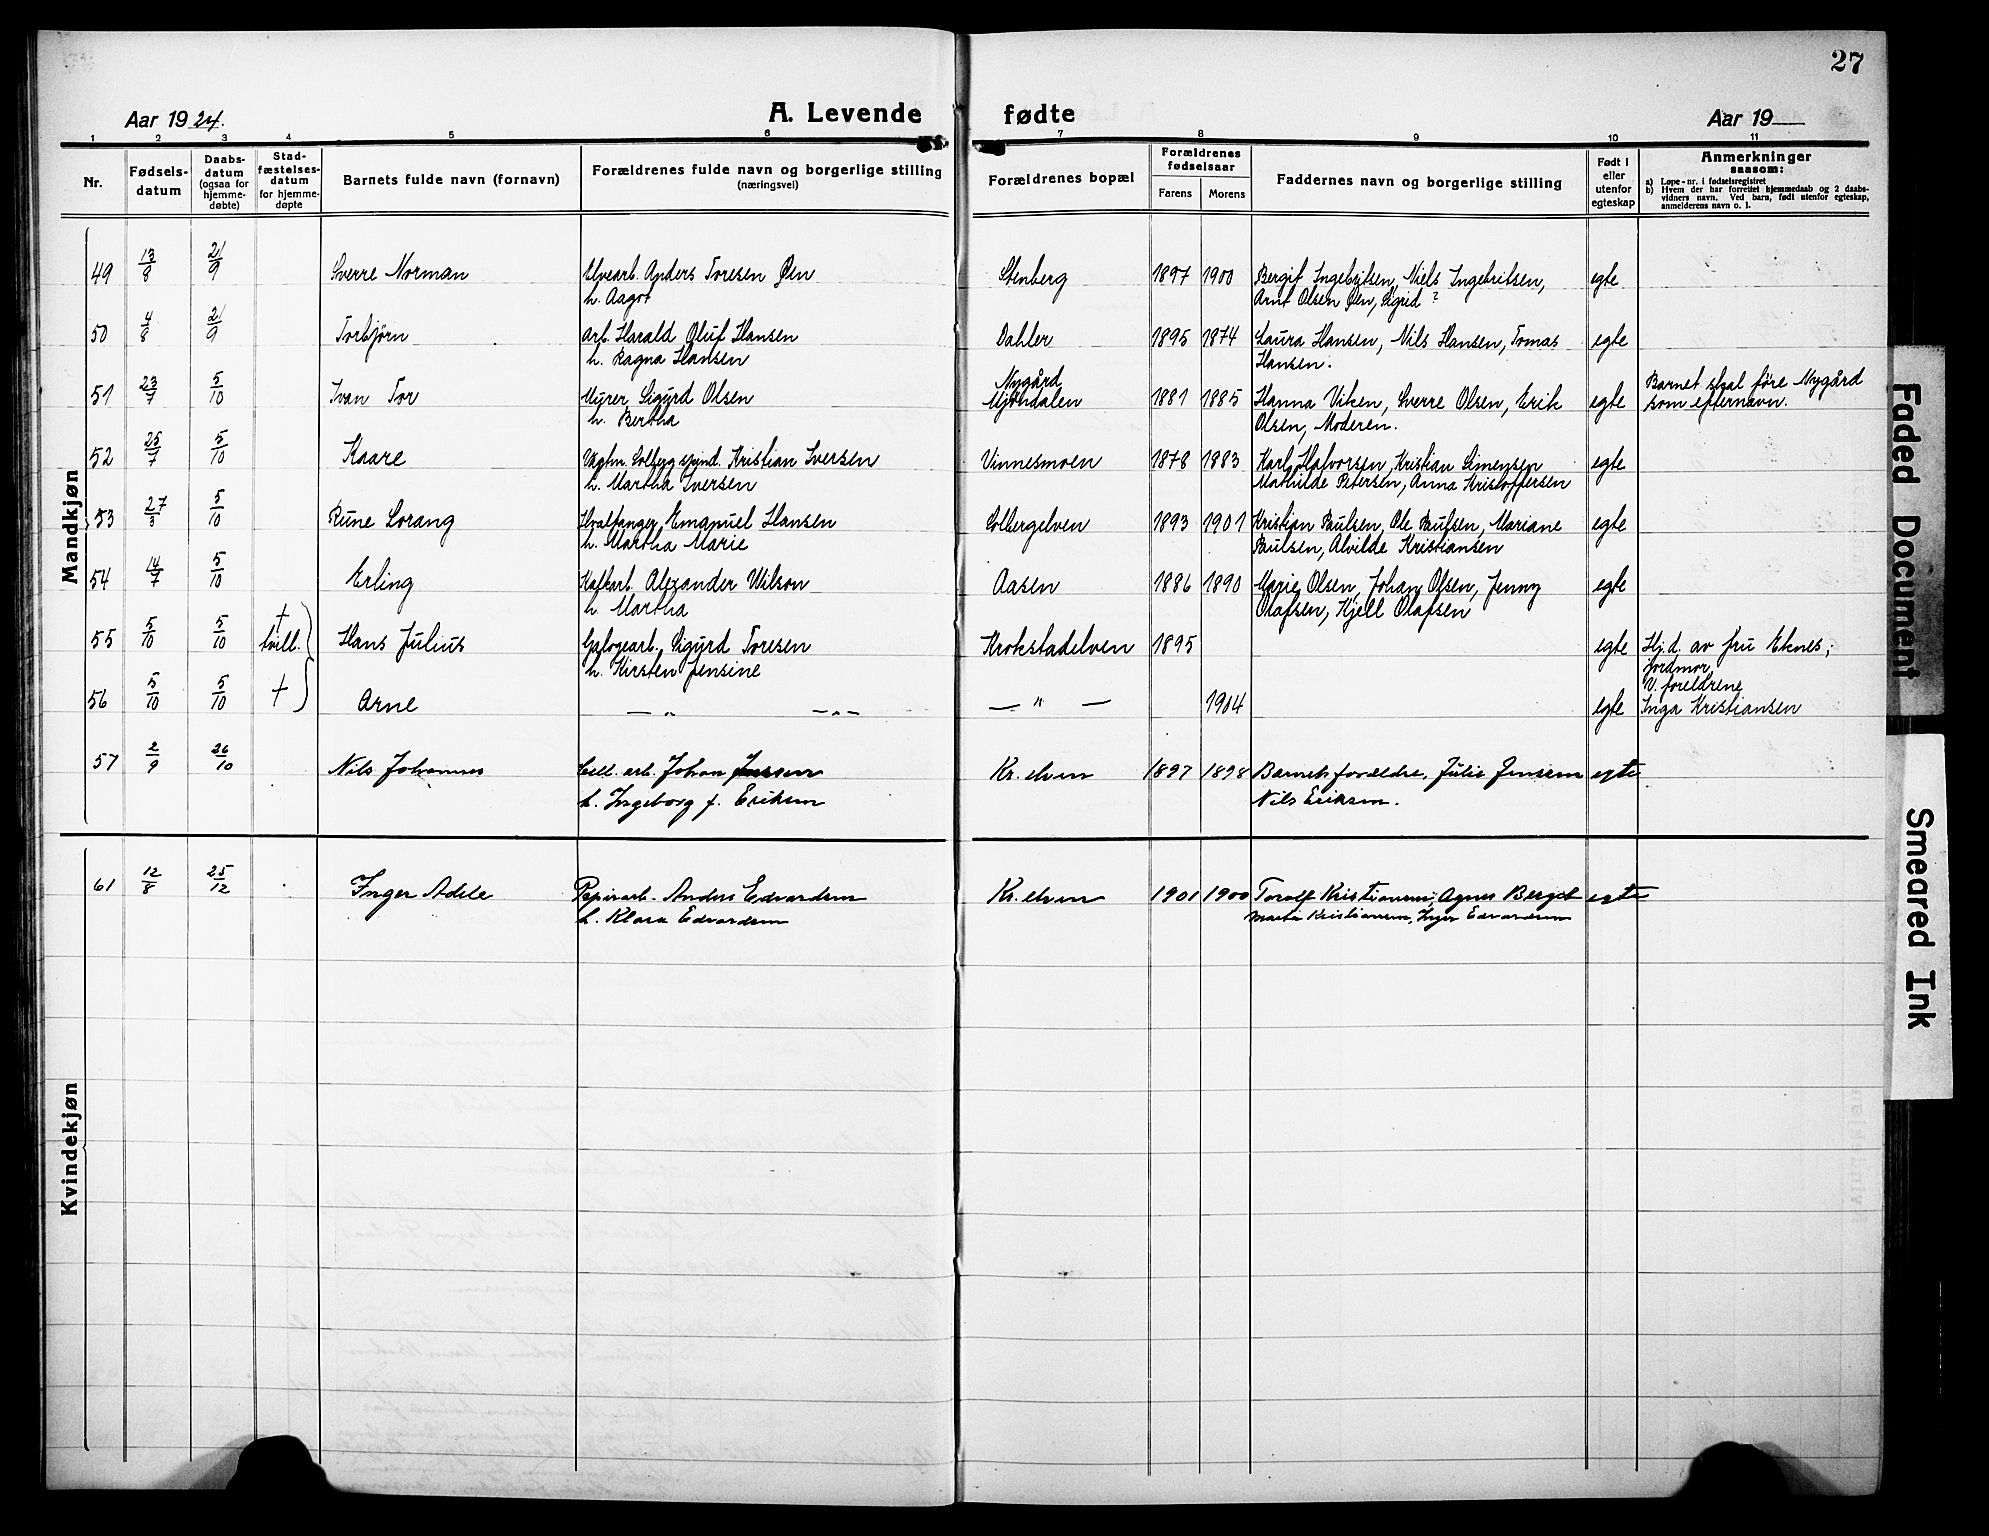 27
Aar 1924.
A. Levende fødte
Aar 19
1 2 3 4 5 6 7 8 9 10 11
Nr.
Fødsels-
datum
Daabs-
datum
(ogsaa for
hjemme-
døbte)
Stad-
fæstelses-
datum
for hjemme-
døpte
Barnets fulde navn (fornavn)
Forældrenes fulde navn og borgerlige stilling
(næringsvei)
Forældrenes bopæl
Forældrenes
fødselsaar
Farens Morens
Faddernes navn og borgerlige stilling
Født i
eller
utenfor
egteskap
Anmerkninger
saasom:
a) Løpe-nr. i fødselsregistret
b) Hvem der har forrettet hjemmedaab og 2 daabs-
vidners navn. Ved barn, født utenfor egteskap,
anmelderens navn o. l.
Mandkjøn
49 13/8 21/9 Sverre Norman Elvearb. Anders Toresen Øen Stenberg 1897 1900 Bergit Ingebritsen, Niels Ingebritsen, egte
h. Aagot Arnt Olsen Øen, Sigrid ?
50 4/8 21/9 Torbjørn Arb. Harald Oluf Hansen Dahler 1895 1874 Laura Hansen, Nils Hansen, Tomas egte
h. Ragna Hansen Hansen.
51 23/7 5/10 Ivan Tor Murer Sigurd Olsen Nygård Mjöndalen 1881 1885 Hanna Viken, Sverre Olsen, Erik egte Barnet skal före Nygård
h. Bertha Olsen, Moderen. som efternavn.
52 25/7 5/10 Kaare Kristian Iversen Vinnesmoen 1878 1883 Karl Halvorsen, Kristian Simensen egte
h. Martha Iversen Mathilde Petersen, Anna Kristoffersen
53 27/3 5/10 Rune Lorang Hvalfanger Emanuel Hansen Solbergelven 1893 1901 Kristian Paulsen, Ole Paulsen, Mariane egte
h. Martha Marie Paulsen, Alvilde Kristiansen
54 14/7 5/10 Erling Kafkarb. Alexander Wilson Aasen 1886 1890 Marie Olsen, Johan Olsen, Jenny egte
h. Martha Olafsen, Kjell Olafsen
55 5/10 5/10 + tvill. Hans Julius Sigurd Toresen Krokstadelven 1895 egte Hj.d. av fru Eknes,
h. Kirsten Jensine jordmor
V. foreldrene
56 5/10 5/10 + Arne — „ — — „ — — " — 1904 egte Inga Kristiansen
57 2/9 26/10 Nils Johannes Cell. arb. Johan Jensen Kr. elven 1897 1898 Barnets forældre, Julie Jensen egte
h. Ingeborg f. Eriksen Nils Eriksen.
Kvindekjøn
61 12/8 25/12 Inger Adele Papirarb. Anders Edvardsen Kr. elven 1901 1900 Torolf Kristiansen, Agnes Berget egte
h. Klara Edvardsen Marta Kristiansen, Inger Edvardsen
Faded Document
Smeared Ink